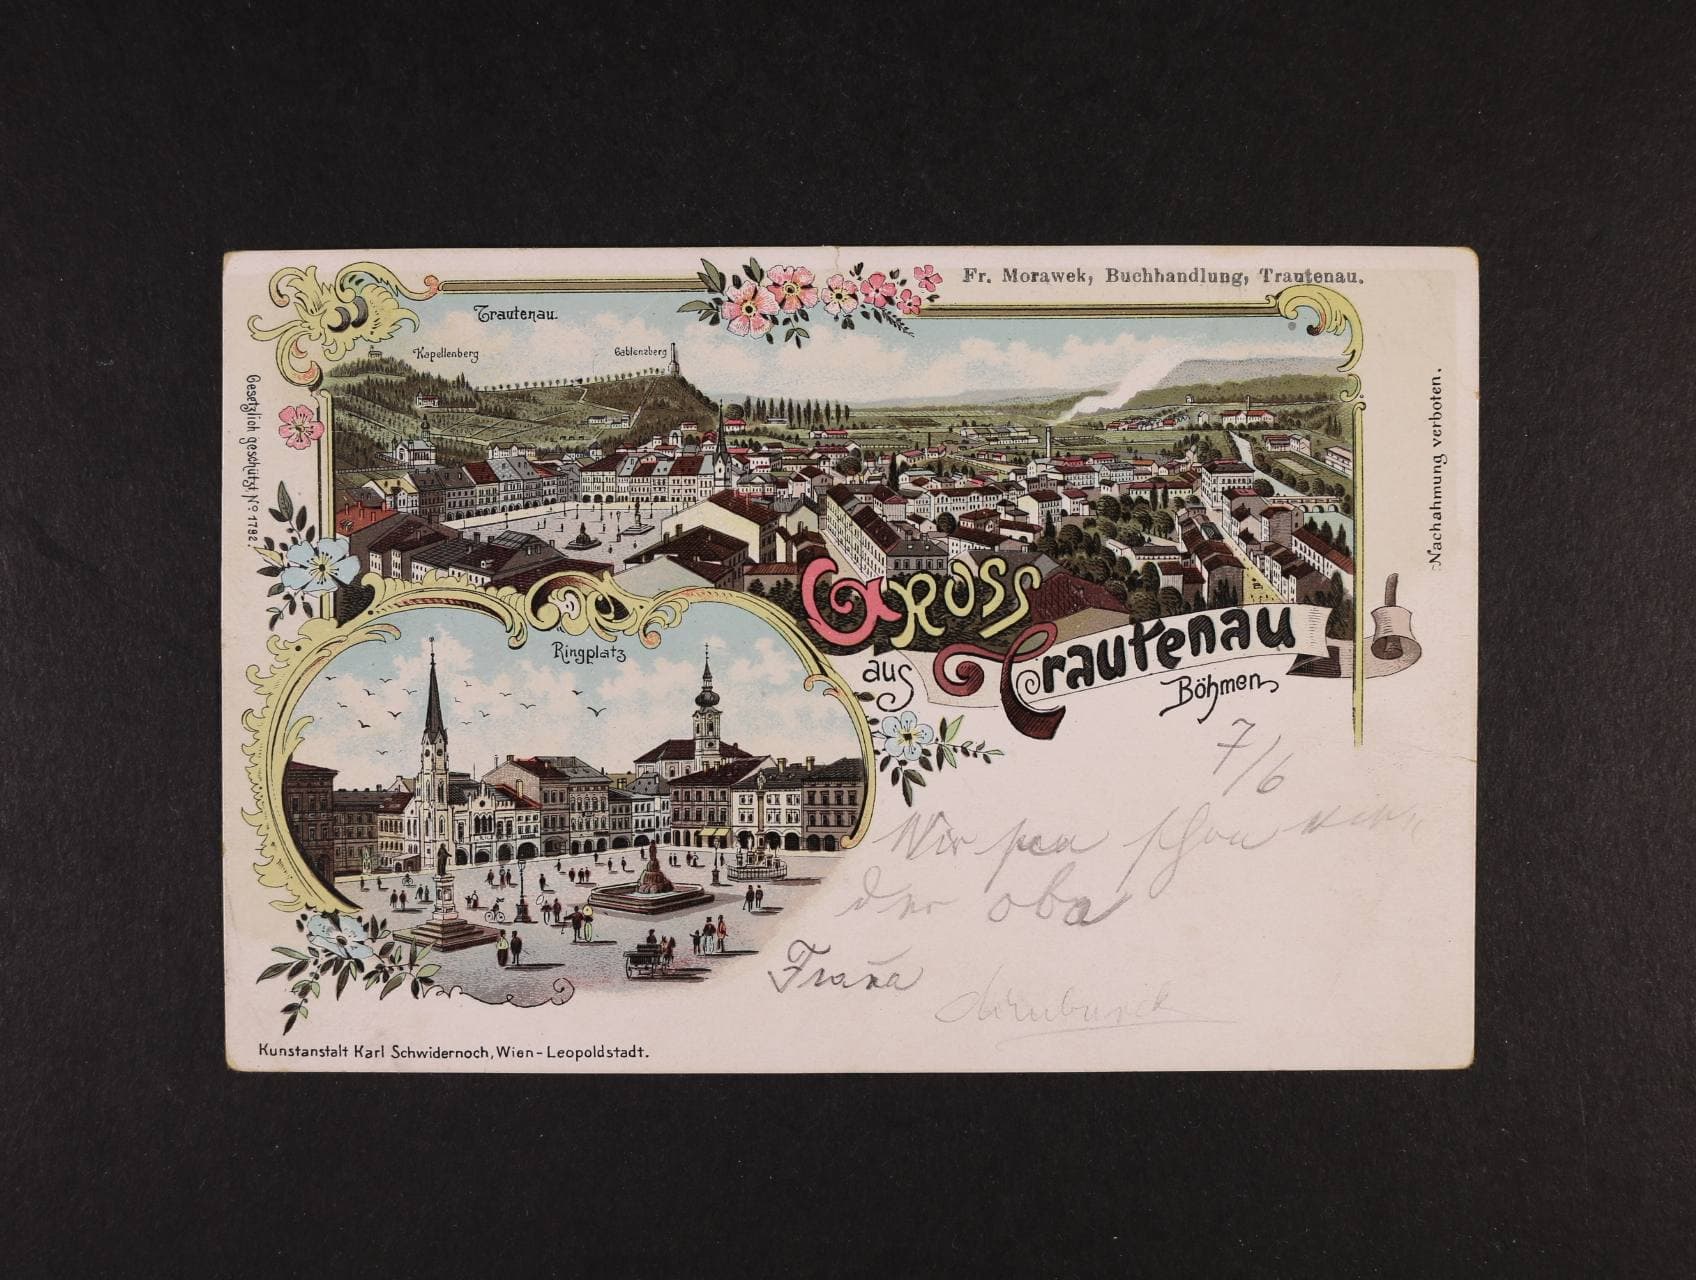 Fr. Morawek, Buchhandlung, Trautenau.
Trautenau.
Kapellenberg
Gablenzberg
Gesetzlich geschützt Nº 1792.
Nachahmung verboten.
Gruss
aus Trautenau
Böhmen
Ringplatz
7/6
Wir schon
der oba
Kunstanstalt Karl Schwidernoch, Wien-Leopoldstadt.